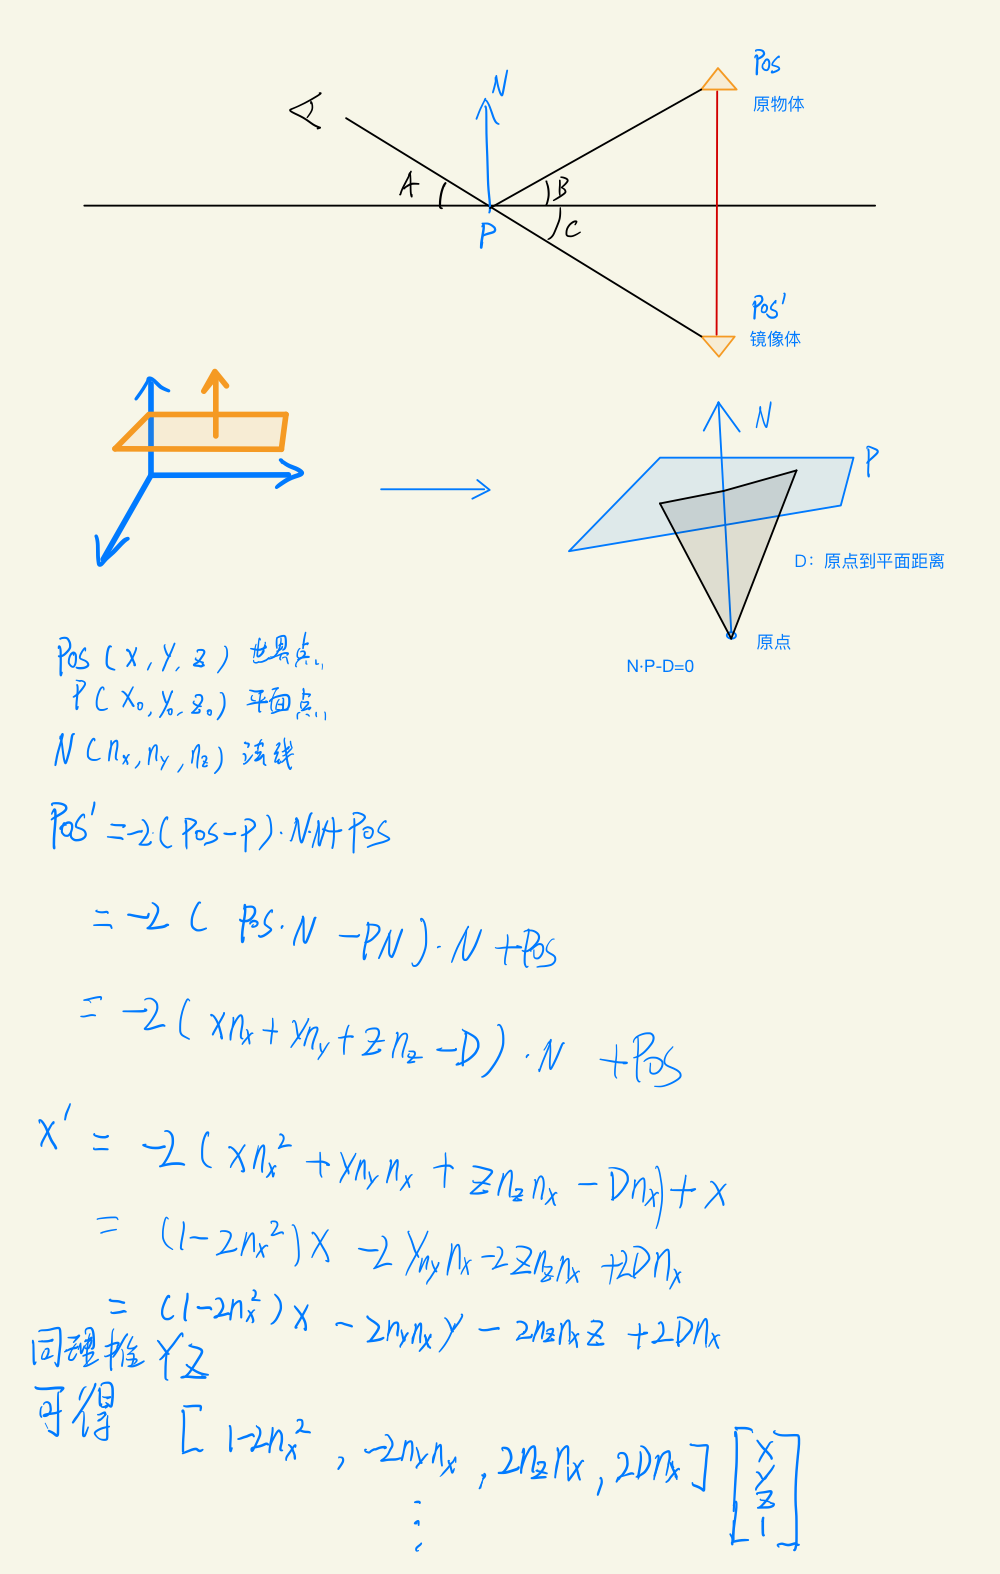 Pos
原物体
N
A
B
P
C
Pos'
镜像体
N
P
D：原点到平面距离
原点
N·P-D=0
Pos (x, y, z) 世界点
P (x₀, y₀, z₀) 平面点
N (nₓ, nᵧ, n_z) 法线
Pos' = -2·(Pos-P)·N·N+Pos
= -2 ( Pos·N - PN)·N + Pos
= -2 ( xnₓ + ynᵧ + zn_z - D)·N + Pos
x' = -2 ( xnₓ² + ynᵧnₓ + zn_znₓ - Dnₓ) + x
= (1-2nₓ²)x - 2ynᵧnₓ - 2zn_znₓ + 2Dnₓ
= (1-2nₓ²)x - 2nᵧnₓy - 2n_znₓz + 2Dnₓ
同理推 YZ
可得 [ 1-2nₓ² , -2nᵧnₓ , 2n_znₓ , 2Dnₓ ] [ x y z 1 ]
⋮